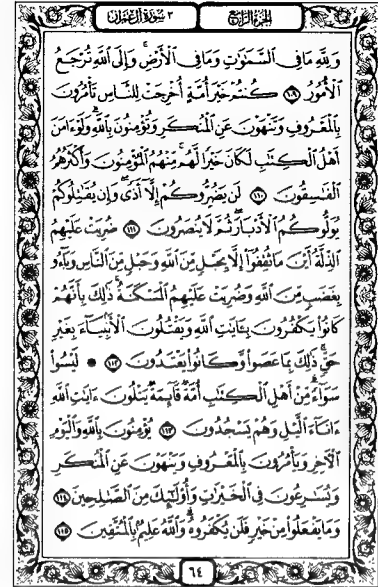 الجُزءُ الرَّابِعُ
٣ سُورَةُ آلِ عِمْرَانَ
وَلِلَّهِ مَا فِي السَّمَٰوَٰتِ وَمَا فِي الْأَرْضِ ۚ وَإِلَى اللَّهِ تُرْجَعُ
الْأُمُورُ ١٠٩ كُنتُمْ خَيْرَ أُمَّةٍ أُخْرِجَتْ لِلنَّاسِ تَأْمُرُونَ
بِالْمَعْرُوفِ وَتَنْهَوْنَ عَنِ الْمُنكَرِ وَتُؤْمِنُونَ بِاللَّهِ ۗ وَلَوْ ءَامَنَ
أَهْلُ الْكِتَٰبِ لَكَانَ خَيْرًا لَّهُم ۚ مِّنْهُمُ الْمُؤْمِنُونَ وَأَكْثَرُهُمُ
الْفَٰسِقُونَ ١١٠ لَن يَضُرُّوكُمْ إِلَّا أَذًى ۖ وَإِن يُقَٰتِلُوكُمْ
يُوَلُّوكُمُ الْأَدْبَارَ ثُمَّ لَا يُنصَرُونَ ١١١ ضُرِبَتْ عَلَيْهِمُ
الذِّلَّةُ أَيْنَ مَا ثُقِفُوا إِلَّا بِحَبْلٍ مِّنَ اللَّهِ وَحَبْلٍ مِّنَ النَّاسِ وَبَاءُو
بِغَضَبٍ مِّنَ اللَّهِ وَضُرِبَتْ عَلَيْهِمُ الْمَسْكَنَةُ ۚ ذَٰلِكَ بِأَنَّهُمْ
كَانُوا يَكْفُرُونَ بِـَٔايَٰتِ اللَّهِ وَيَقْتُلُونَ الْأَنۢبِيَاءَ بِغَيْرِ
حَقٍّ ۚ ذَٰلِكَ بِمَا عَصَوا وَّكَانُوا يَعْتَدُونَ ١١٢ ۞ لَيْسُوا
سَوَاءً ۗ مِّنْ أَهْلِ الْكِتَٰبِ أُمَّةٌ قَائِمَةٌ يَتْلُونَ ءَايَٰتِ اللَّهِ
ءَانَاءَ الَّيْلِ وَهُمْ يَسْجُدُونَ ١١٣ يُؤْمِنُونَ بِاللَّهِ وَالْيَوْمِ
الْءَاخِرِ وَيَأْمُرُونَ بِالْمَعْرُوفِ وَيَنْهَوْنَ عَنِ الْمُنكَرِ
وَيُسَٰرِعُونَ فِي الْخَيْرَٰتِ وَأُولَٰئِكَ مِنَ الصَّٰلِحِينَ ١١٤
وَمَا يَفْعَلُوا مِنْ خَيْرٍ فَلَن يُكْفَرُوهُ ۗ وَاللَّهُ عَلِيمٌۢ بِالْمُتَّقِينَ ١١٥
٦٤